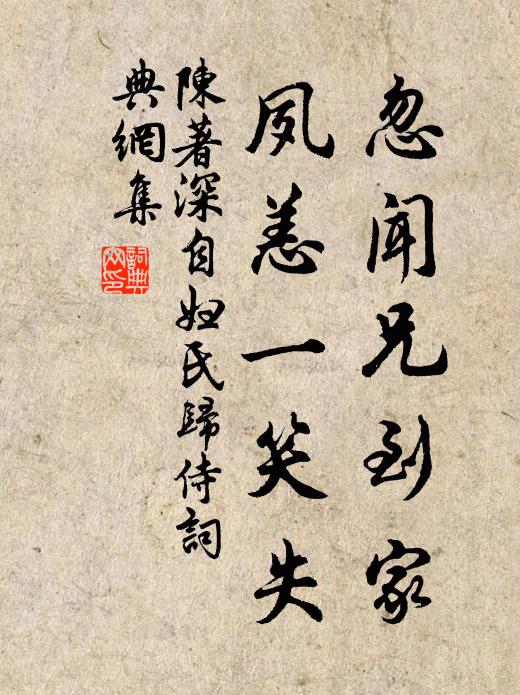 忽聞兄到家
夙恙一笑失
陳著深自妲氏歸侍詞
典網集
詞典網印